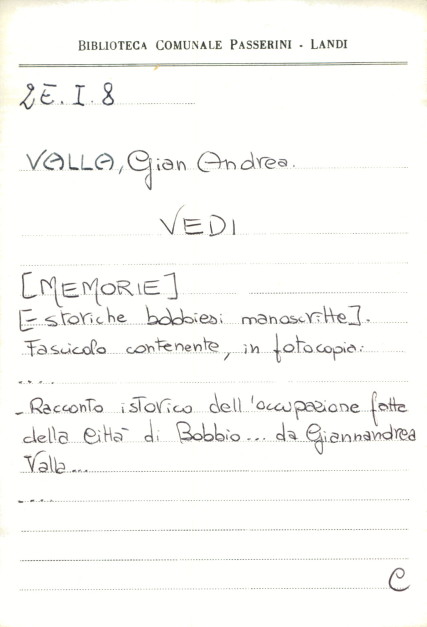 BIBLIOTECA COMUNALE PASSERINI - LANDI
2E. I. 8
VALLA, Gian Andrea.
VEDI
[MEMORIE]
[- storiche bobbiesi manoscritte].
Fascicolo contenente, in fotocopia:
....
- Racconto istorico dell'occupazione fatte
della Città di Bobbio... da Giannandrea
Valla...
....
C